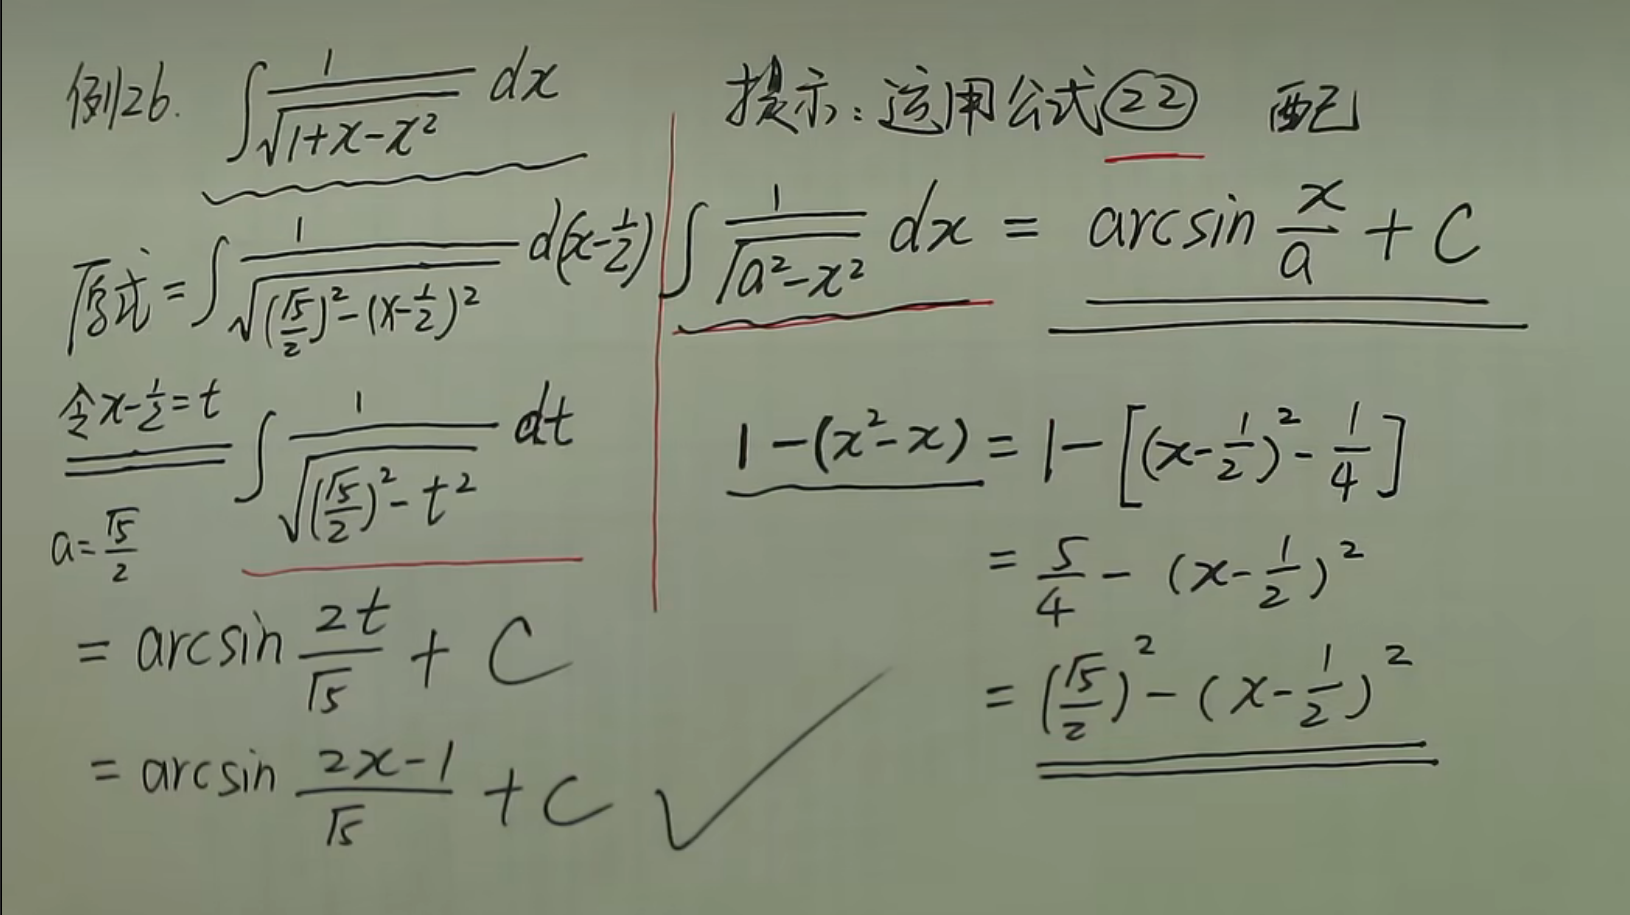 例26. ∫ 1/√(1+x-x²) dx
原式 = ∫ 1/√((√5/2)² - (x-1/2)²) d(x-1/2)
令x-1/2=t ∫ 1/√((√5/2)² - t²) dt
a=√5/2
= arcsin 2t/√5 + C
= arcsin (2x-1)/√5 + C
提示：运用公式㉒ 配
∫ 1/√(a²-x²) dx = arcsin x/a + C
1-(x²-x) = 1-[(x-1/2)² - 1/4]
= 5/4 - (x-1/2)²
= (√5/2)² - (x-1/2)²